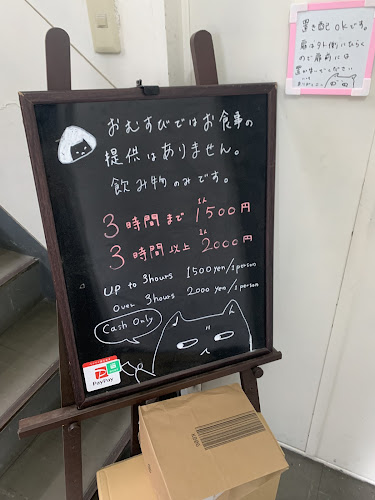 おむすびではお食事の
提供はありません。
飲み物のみです。
3時間まで 1人1500円
3時間以上 1人2000円
UP to 3hours 1500yen/1person
over 3hours 2000yen/1person
Cash Only
PayPay
置き配OKです。
扉は外側にひらく
ので扉前には